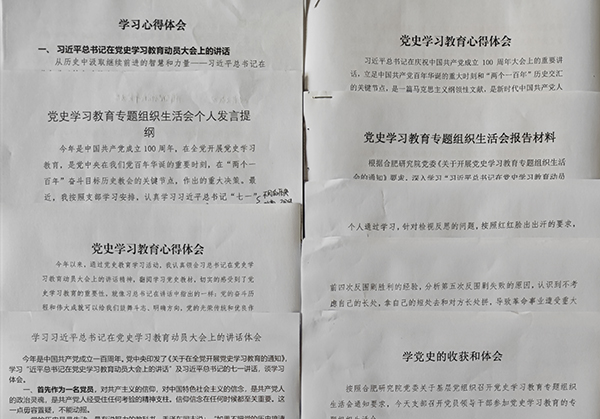 学习心得体会
一、 习近平总书记在党史学习教育动员大会上的讲话
从历史中汲取继续前进的智慧和力量——习近平总书记在
党史学习教育专题组织生活会个人发言提
纲
今年是中国共产党成立 100 周年，在全党开展党史学习
教育，是党中央在我们党百年华诞的重要时刻，在“两个一
百年”奋斗目标历史教会的关键节点，作出的重大决策。最
近，我按照支部学习安排，认真学习习近平总书记“七一”
党史学习教育心得体会
今年以来，通过党史教育学习活动，我认真领会习总书记在党史学
习教育动员大会上的讲话精神，翻阅学习党史教材，切实的感受到了党
史学习教育的重要性。就像习总书记在讲话中指出的一样：党的奋斗历
程和伟大成就可以给我们鼓舞斗志、明确方向，党的光荣传统和优良作
学习习近平总书记在党史学习教育动员大会上的讲话体会
今年是中国共产党成立一百周年。党中央印发了《关于在全党开展党史学习教育的通知》，
学习“近平总书记在党史学习教育动员大会上的讲话”及习近平总书记的七一讲话，谈学习
体会。
一、首先作为一名党员，对共产主义的信仰，对中国特色社会主义的信念，是共产党人
的政治灵魂，是共产党人经受住任何考验的精神支柱。信仰信念在任何时候都至关重要。这
一点毋容置疑，不能动摇。
党史学习教育心得体会
习近平总书记在庆祝中国共产党成立 100 周年大会上的重要讲
话，立足中国共产党百年华诞的重大时刻和“两个一百年”历史交汇
的关键节点，是一篇马克思主义纲领性文献，是新时代中国共产党人
党史学习教育专题组织生活会报告材料
根据合肥研究院党委《关于开展党史学习教育专题组织生活
会的通知》要求，深入学习“习近平总书记在党史学习教育动员
个人通过学习，针对检视反思的问题，按照红红脸出出汗的要求，
前四次反围剿胜利的经验，分析第五次反围剿失败的原因，认识到不考
虑自己的长处，拿自己的短处去和对方长处拼，导致革命事业遭受重大
学党史的收获和体会
按照合肥研究院党委关于基层党组织召开党史学习教育专题组织生
活会通知要求，今天支部召开党员领导干部参加党史学习教育的专